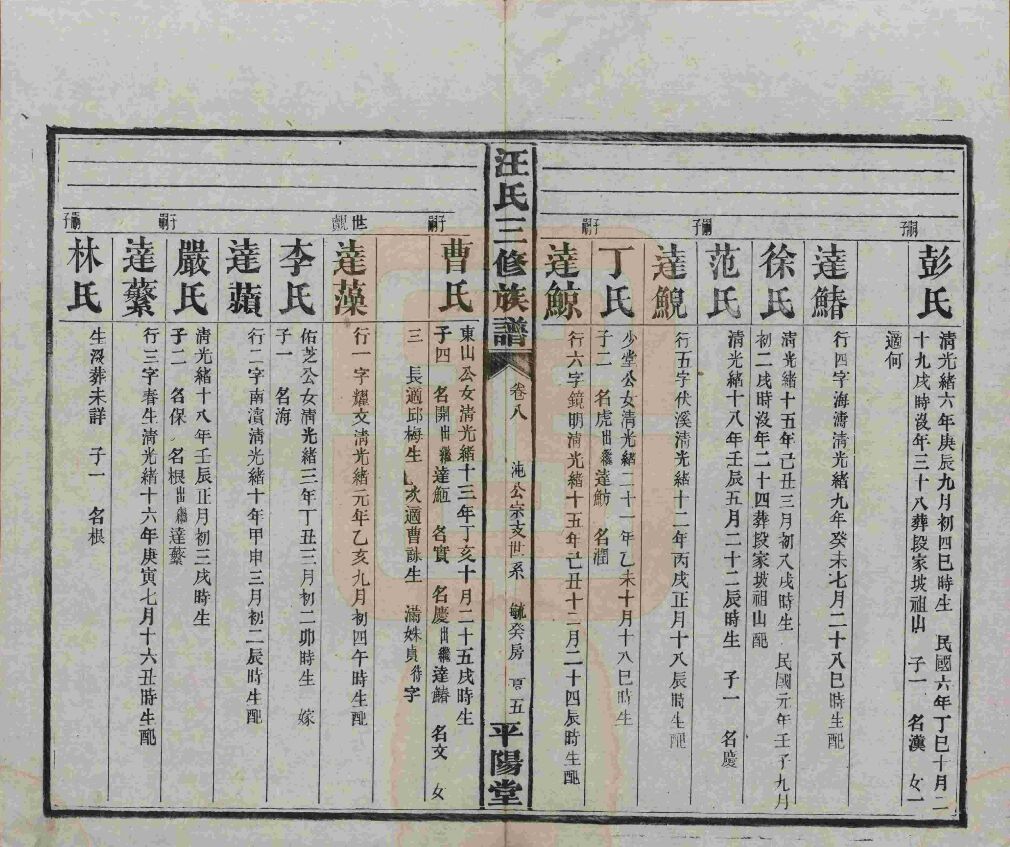 嗣子
彭氏
清光緒六年庚辰九月初四巳時生　民國六年丁巳十月二
十九戌時沒年三十八葬段家坡祖山　子一　名漢　女一
適何
達鰆
行四字海濤清光緒九年癸未七月二十八巳時生配
徐氏
清光緒十五年己丑三月初八戌時生　民國元年壬子九月
初二戌時沒年二十四葬段家坡祖山配
嗣子
范氏
清光緒十八年壬辰五月二十二辰時生　子一　名慶
達鯢
行五字伏溪清光緒十二年丙戌正月十八辰時生配
嗣子
丁氏
少堂公女清光緒二十一年乙未十月十八巳時生
子二　名虎出繼達魴　名潤
達鯨
行六字鏡明清光緒十五年己丑十二月二十四辰時生配
汪氏三修族譜
卷八
沌公宗支世系　毓癸房
五
平陽堂
嗣子
曹氏
東山公女清光緒十三年丁亥十月二十五戌時生
子四　名開出繼達　名實　名慶出繼達鰆　名文　女
三　長適邱梅生　次適曹詠生　滿姝貞待字
世覯
達藻
行一字耀文清光緒元年乙亥九月初四午時生配
李氏
佑芝公女清光緒三年丁丑三月初二卯時生　嫁
子一　名海
達蘋
行二字南濱清光緒十年甲申三月初二辰時生配
嗣子
嚴氏
清光緒十八年壬辰正月初三戌時生
子二　名保　名根出繼達蘩
達蘩
行三字春生清光緒十六年庚寅七月十六丑時生配
嗣子
林氏
生沒葬未詳　子一　名根